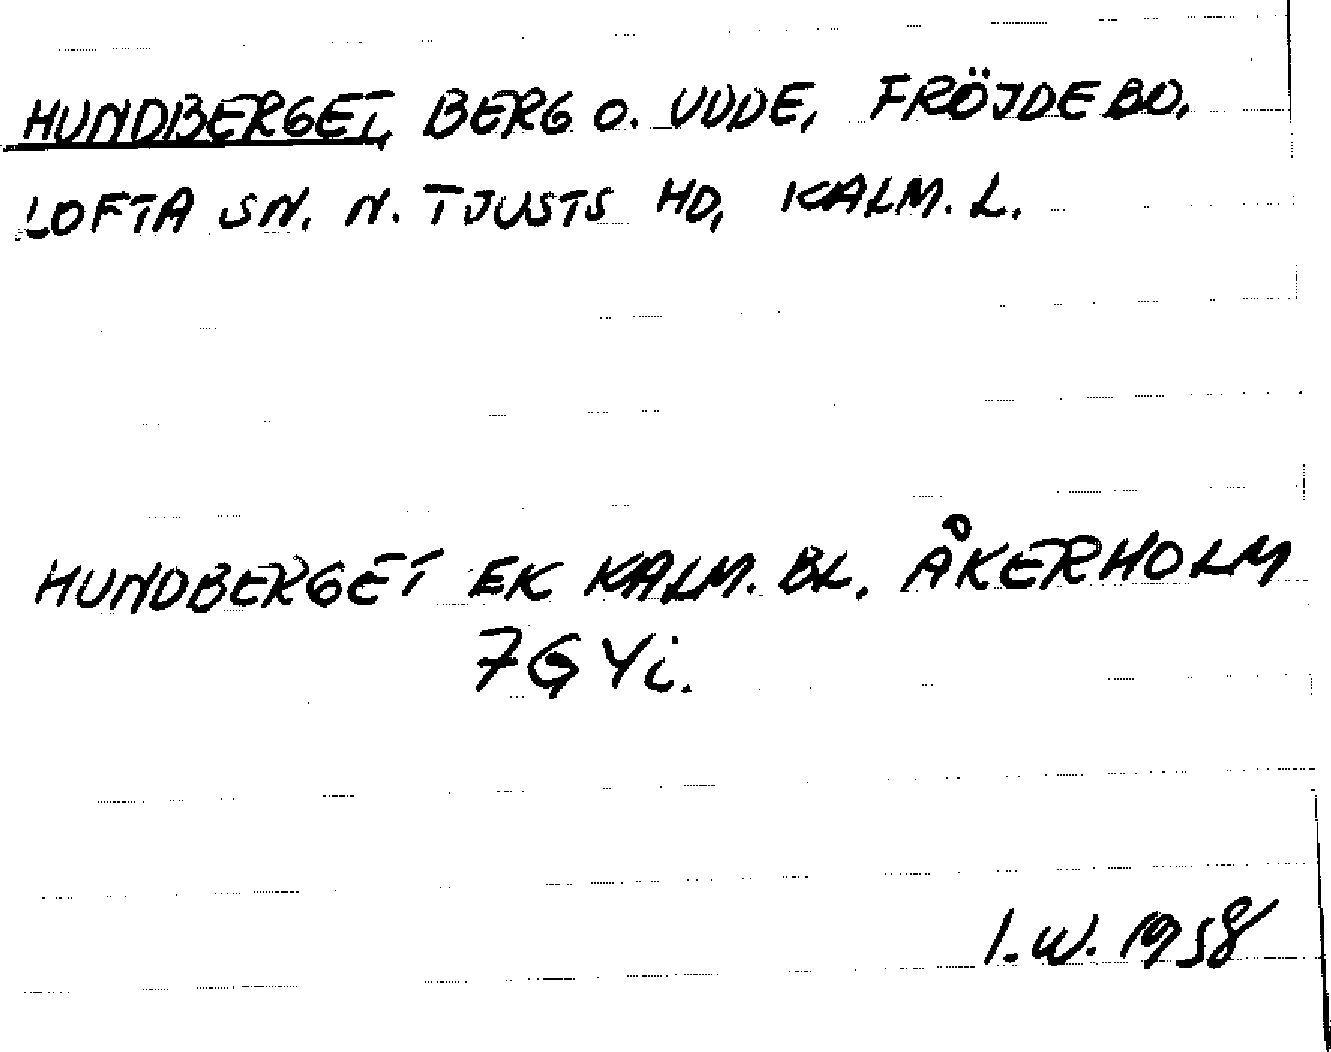 HUNDBERGET, BERG O. UDDE, FRÖJDEBO,
LOFTA SN. N. TJUSTS HD, KALM. L.
HUNDBERGET EK KALM. BL. ÅKERHOLM
7G Yi.
I.W. 1958